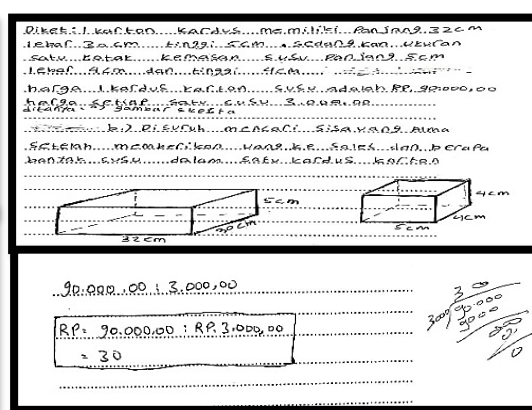 Diket: 1 karton kardus memiliki panjang 32cm
lebar 30cm tinggi 5cm. sedangkan ukuran
satu kotak kemasan susu panjang 5cm
lebar 4cm dan tinggi 4cm
harga 1 kardus karton susu adalah RP. 90.000,00
harga setiap satu susu 3.000,00
ditanya: gambar sketsa
b.) Disuruh mencari sisa uang Alma
setelah memberikan uang ke sales dan berapa
banyak susu dalam satu kardus karton
5cm
30cm
32cm
4cm
4cm
5cm
90.000,00 : 3.000,00
RP. 90.000,00 : RP. 3.000,00
= 30
30
3000 90.000
9000
0